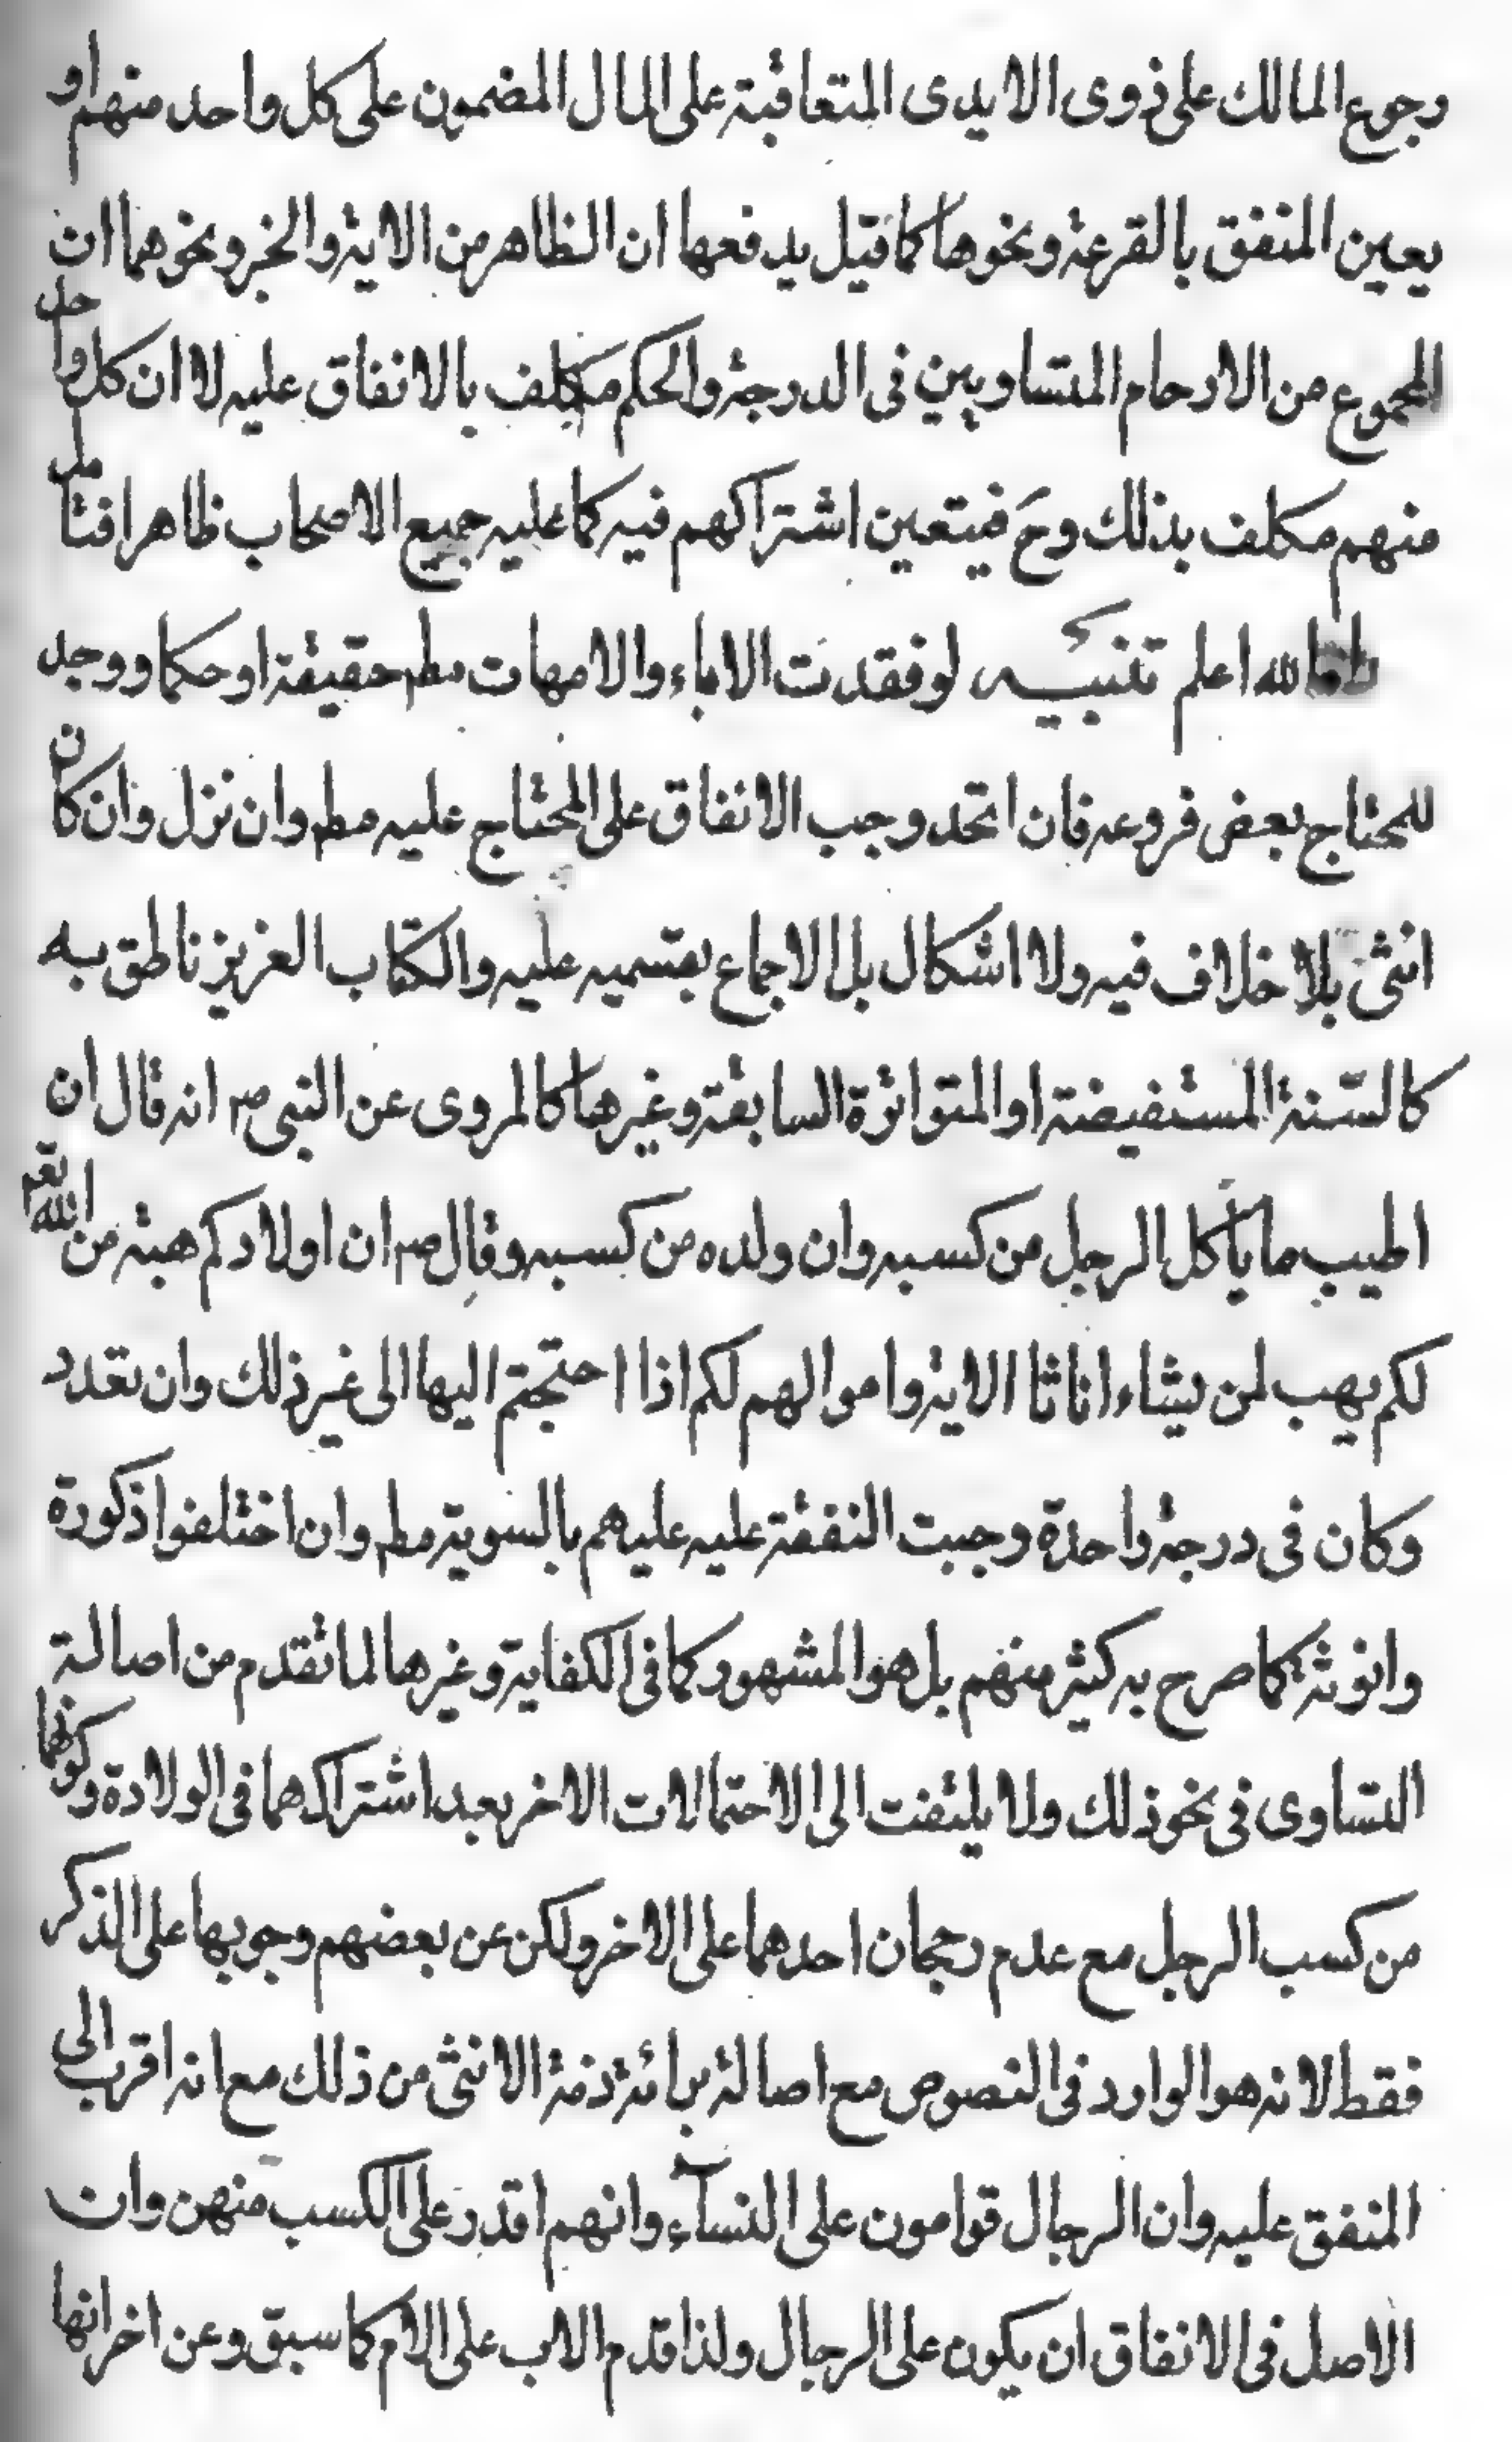 رجوع المالك على ذوى الايدى المتعاقبة على المال المضمون على كل واحد منهم او
يعين المنفق بالقرعة ونحوها كما قيل يدفعها ان الظاهر من الاية والخبر ونحوهما ان
المجموع من الارحام المتساويين فى الدرجة والحكم مكلف بالانفاق عليه لا ان كل واحد
منهم مكلف بذلك وح فيتعين اشتراكهم فيه كما عليه جميع الاصحاب ظاهرا فتامل
الله اعلم تنبيه لو فقدت الاباء والامهات مطم حقيقة او حكما ووجد
للمحتاج بعض فروعه فان اتحد وجب الانفاق على المحتاج عليه مطم وان نزل وان كان
انثى بلا خلاف فيه ولا اشكال بل الاجماع بقسميه عليه والكتاب العزيز ناطق به
كالسّنة المستفيضة او المتواترة السابقة وغيرها كالمروى عن النبى ص انه قال ان
اطيب ما يأكل الرجل من كسبه وان ولده من كسبه وقال ص ان اولادكم هبة من الله تعم
لكم يهب لمن يشاء اناثا الاية واموالهم لكم اذا احتجتم اليها الى غير ذلك وان تعدد
وكان فى درجة واحدة وجبت النفقة عليه عليهم بالسوية مطم وان اختلفوا ذكورة
وانوثة كما صرح به كثير منهم بل هو المشهور كما فى الكفاية وغيرها لما تقدم من اصالة
التساوى فى نحو ذلك ولا يلتفت الى الاحتمالات الاخر بعد اشتراكهما فى الولادة وكونهما
من كسب الرجل مع عدم رجحان احدهما على الاخر ولكن عن بعضهم وجوبها على الذكر
فقط لانه هو الوارد فى النصوص مع اصالة برائة ذمة الانثى من ذلك مع انه اقرب الى
المنفق عليه وان الرجال قوامون على النسآء وانهم اقدر على الكسب منهن وان
الاصل فى الانفاق ان يكون على الرجال ولذا قدم الاب على الام كما سبق وعن اخر انها